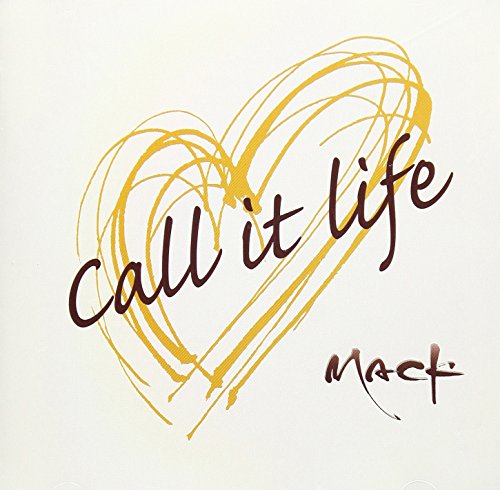 call it life
Mack